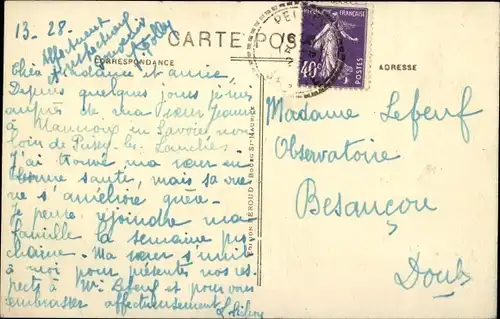 13-28
Affectueux
souvenir
CARTE POS
CORRESPONDANCE
ADRESSE
RÉPUBLIQUE FRANÇAISE
40c
Chère Madame et amie,
Depuis quelques jours je suis
auprès de ma sœur Jeanne
à en Savoie, non
loin de
J'ai trouvé ma sœur en
bonne santé, mais sa vue
ne s'améliore guère.
Je pense rejoindre ma
famille la semaine pro
chaine. Ma sœur s'unit
à moi pour présenter nos res
pects à Mr Lebeuf et pour vous
embrasser affectueusement
Madame Lebeuf
Observatoire
Besançon
Doubs